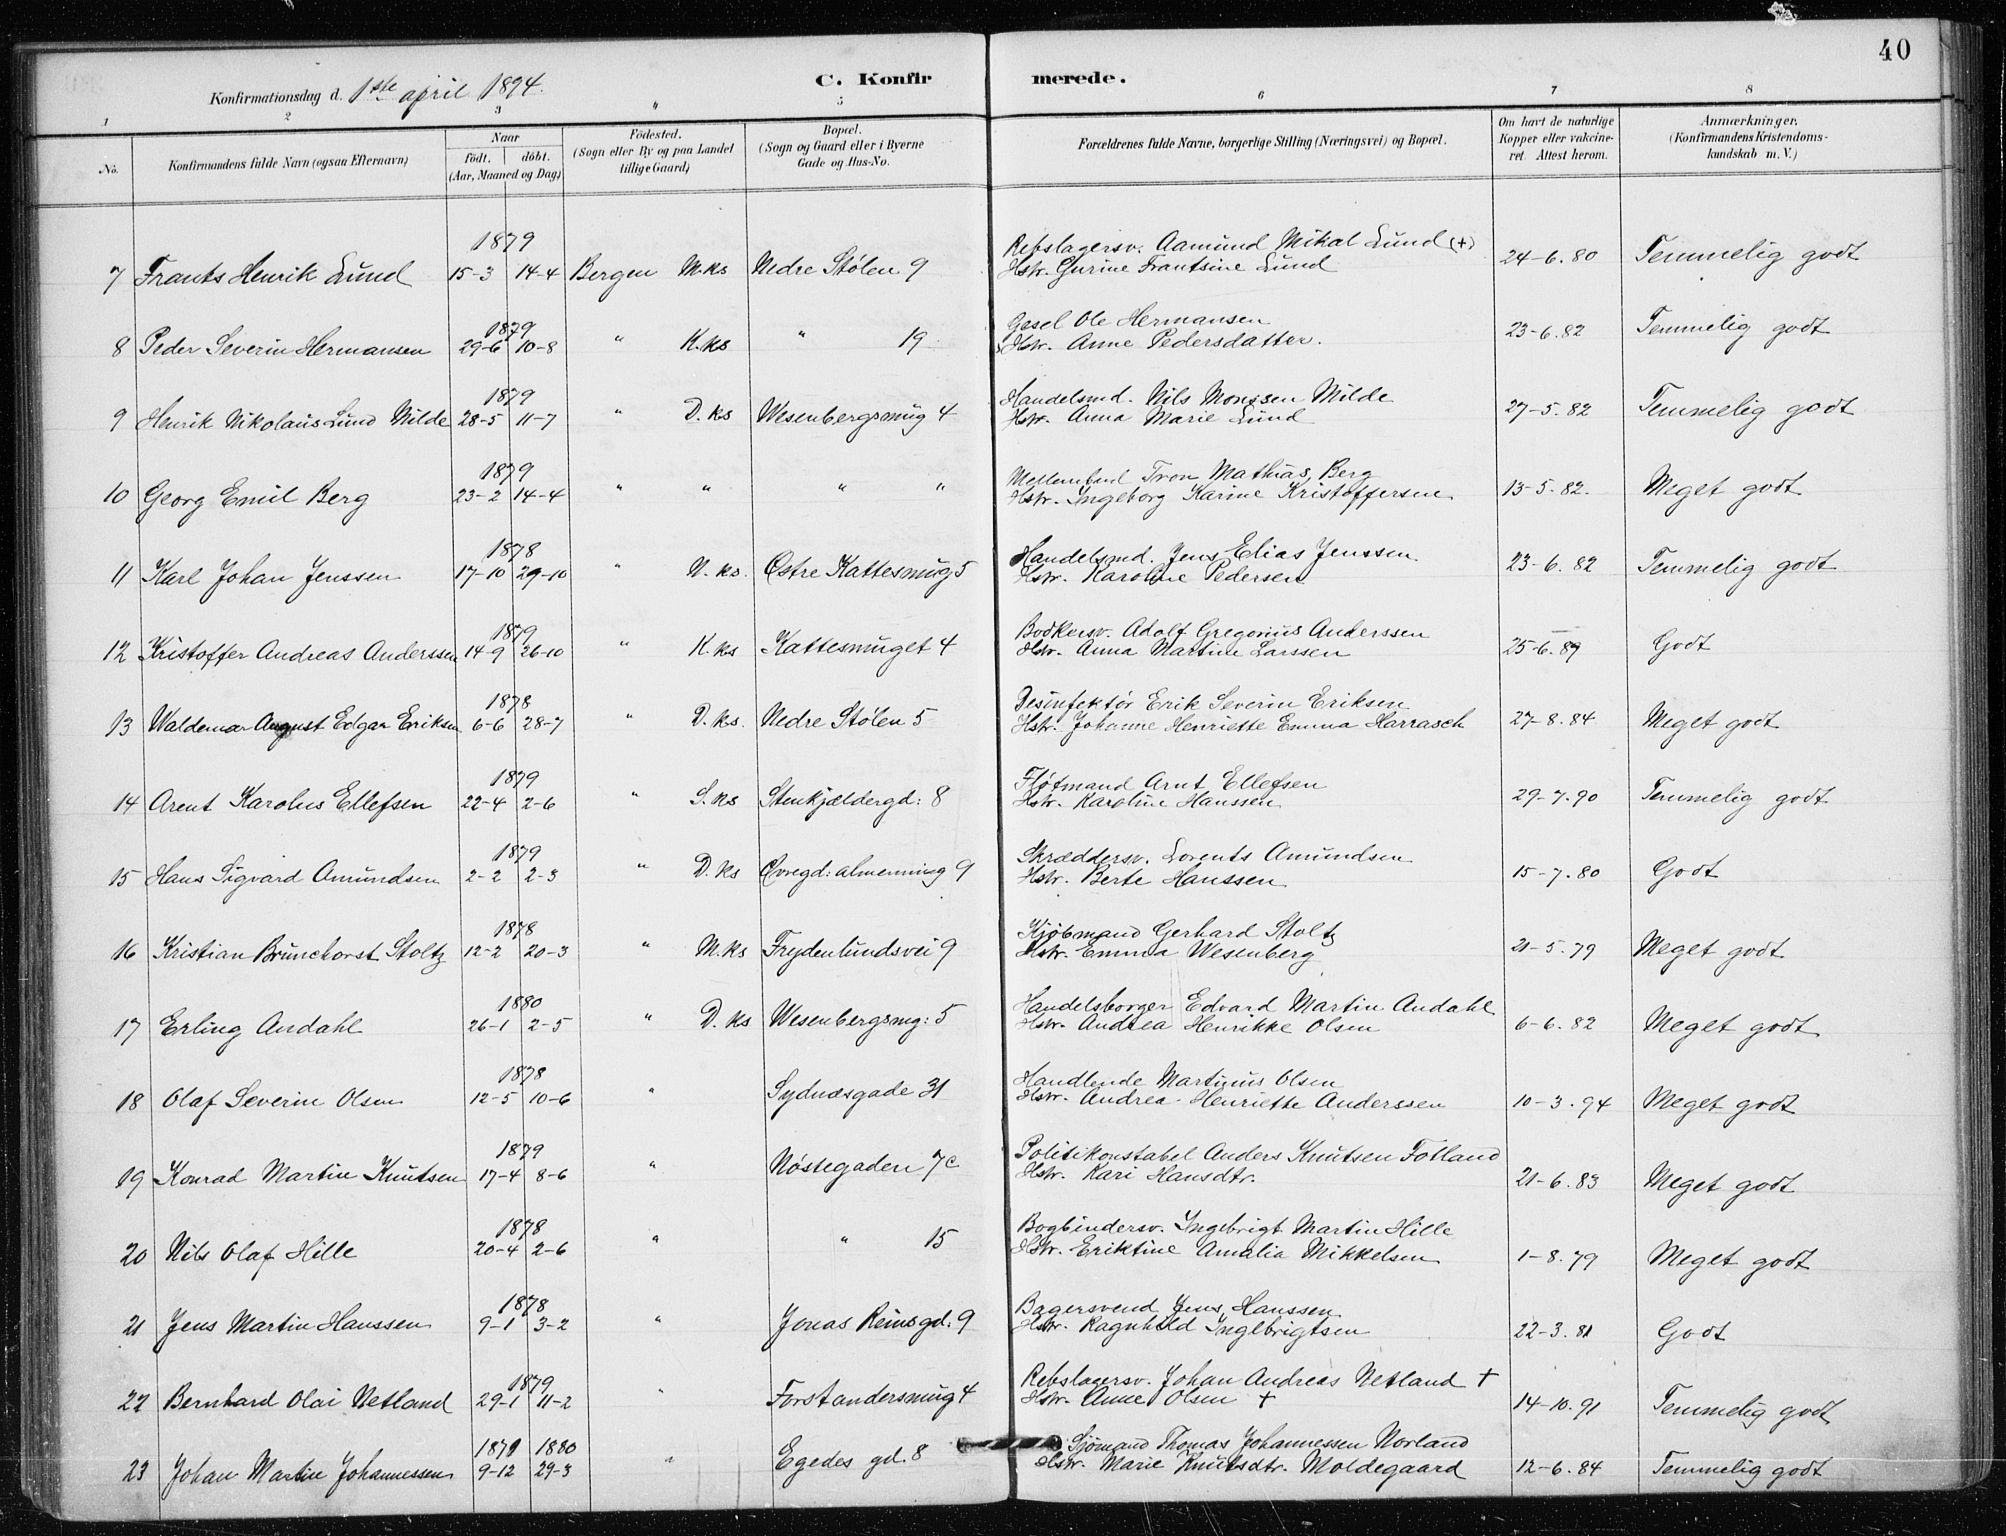 40
C. Konfirmerede.
Konfirmationsdag d. 1ste april 1894.
1 2 3 4 5 6 7 8
No. Konfirmandens fulde Navn (ogsaa Efternavn) Naar födt. döbt. (Aar, Maaned og Dag) Födested. (Sogn eller By og paa Landet tillige Gaard) Bopæl. (Sogn og Gaard eller i Byerne Gade og Hus-No. Forældrenes fulde Navne, borgerlige Stilling (Næringsvei) og Bopæl. Om havt de naturlige Kopper eller vakcineret. Attest herom. Anmærkninger. (Konfirmandens Kristendomskundskab m. V.)
1879 Rebslagersv. Aamund Mikal Lund (+)
7 Frants Henrik Lund 15-3 14-4 Bergen M.ks Nedre Stølen 9 Hstr. Gurine Frantsine Lund 24-6.80 Temmelig godt
1879 Gesel Ole Hermansen
8 Peder Severin Hermansen 29-6 10-8 " K.ks " 19 Hstr. Anne Pedersdatter. 23-6.82 Temmelig godt
1879 Handelsmd. Nils Monssen Milde
9 Henrik Nikolaus Lund Milde 28-5 11-7 " D.ks Wesenbergsmug 4 Hstr. Anna Marie Lund 27-5.82 Temmelig godt
1879 Tron Mathias Berg
10 Georg Emil Berg 23-2 14-4 " " " " Hstr. Ingeborg Karine Kristoffersen 13-5.82. Meget godt
1878 Handelsmd. Jens Elias Jenssen
11 Karl Johan Jenssen 17-10 29-10 " N.ks. Østre Kattesmug 5 Hstr. Karoline Pedersen 23-6.82 Temmelig godt
1879 Bødkersv. Adolf Gregorius Anderssen
12 Kristoffer Andreas Anderssen 14-9 26-10 " K.ks Kattesmuget 4 Hstr. Anna Martine Larssen 25-6.89 Godt
1878 Desinfektør Erik Severin Eriksen
13 Waldemar August Edgar Eriksen 6-6 28-7 " D.ks. Nedre Stølen 5 Hstr. Johanne Henriette Emma Harrasch 27-8.84 Meget godt
1879 Fløtmand Arnt Ellefsen
14 Arent Karolus Ellefsen 22-4 2-6 " S.ks Stenkjældergd: 8 Hstr. Karoline Hanssen 29-7.90 Temmelig godt
1879 Skræddersv. Lorents Amundsen
15 Hans Sigvard Amundsen 2-2 2-3 " D.ks Øvregd: almenning 9 Hstr. Berte Hanssen 15-7.80 Godt
1878 Kjøbmand Gerhard Stoltz
16 Kristian Brunchorst Stoltz 12-2 20-3 " M.ks Frydenlundsvei 9 Hstr. Emma Wesenberg 21-5.79 Meget godt
1880 Handelsborger Edvard Martin Andahl
17 Erling Andahl 26-1 2-5 " D.ks Wesenbergsmg: 5 Hstr. Andrea Henrikke Olsen 6-6.82 Meget godt
1878 Handlende Martinus Olsen
18 Olaf Severin Olsen 12-5 10-6 " Sydnæsgade 31 Hstr. Andrea Henriette Anderssen 10-3.94 Meget godt
1879 Politikonstabel Anders Knutsen Fotland
19 Konrad Martin Knutsen 17-4 8-6 " Nøstegaden 7c Hstr. Kari Hansdtr. 21-6.83 Meget godt
1878 Bogbindersv. Ingebrigt Martin Hille
20 Nils Olaf Hille 20-4 2-6 " " 15 Hstr. Eriktine Amalia Mikkelsen 1-8.79 Meget godt
1878 Bagersvend Jens Hanssen
21 Jens Martin Hanssen 9-1 3-2 " Jonas Reinsgd: 9 Hstr. Ragnhild Ingebrigtsen 22-3.81 Godt
1879 Rebslagersv. Johan Andreas Netland +
22 Bernhard Olai Netland 29-1 11-2 " Forstandersmug 4 Hstr. Anne Olsen + 14-10.91 Temmelig godt
1879 1880 Sjømand Thomas Johannessen Norland
23 Johan Martin Johannessen 9-12 29-3 " Egedes gd. 8 Hstr. Marie Knutsdtr. Moldegaard 12-6.84 Temmelig godt